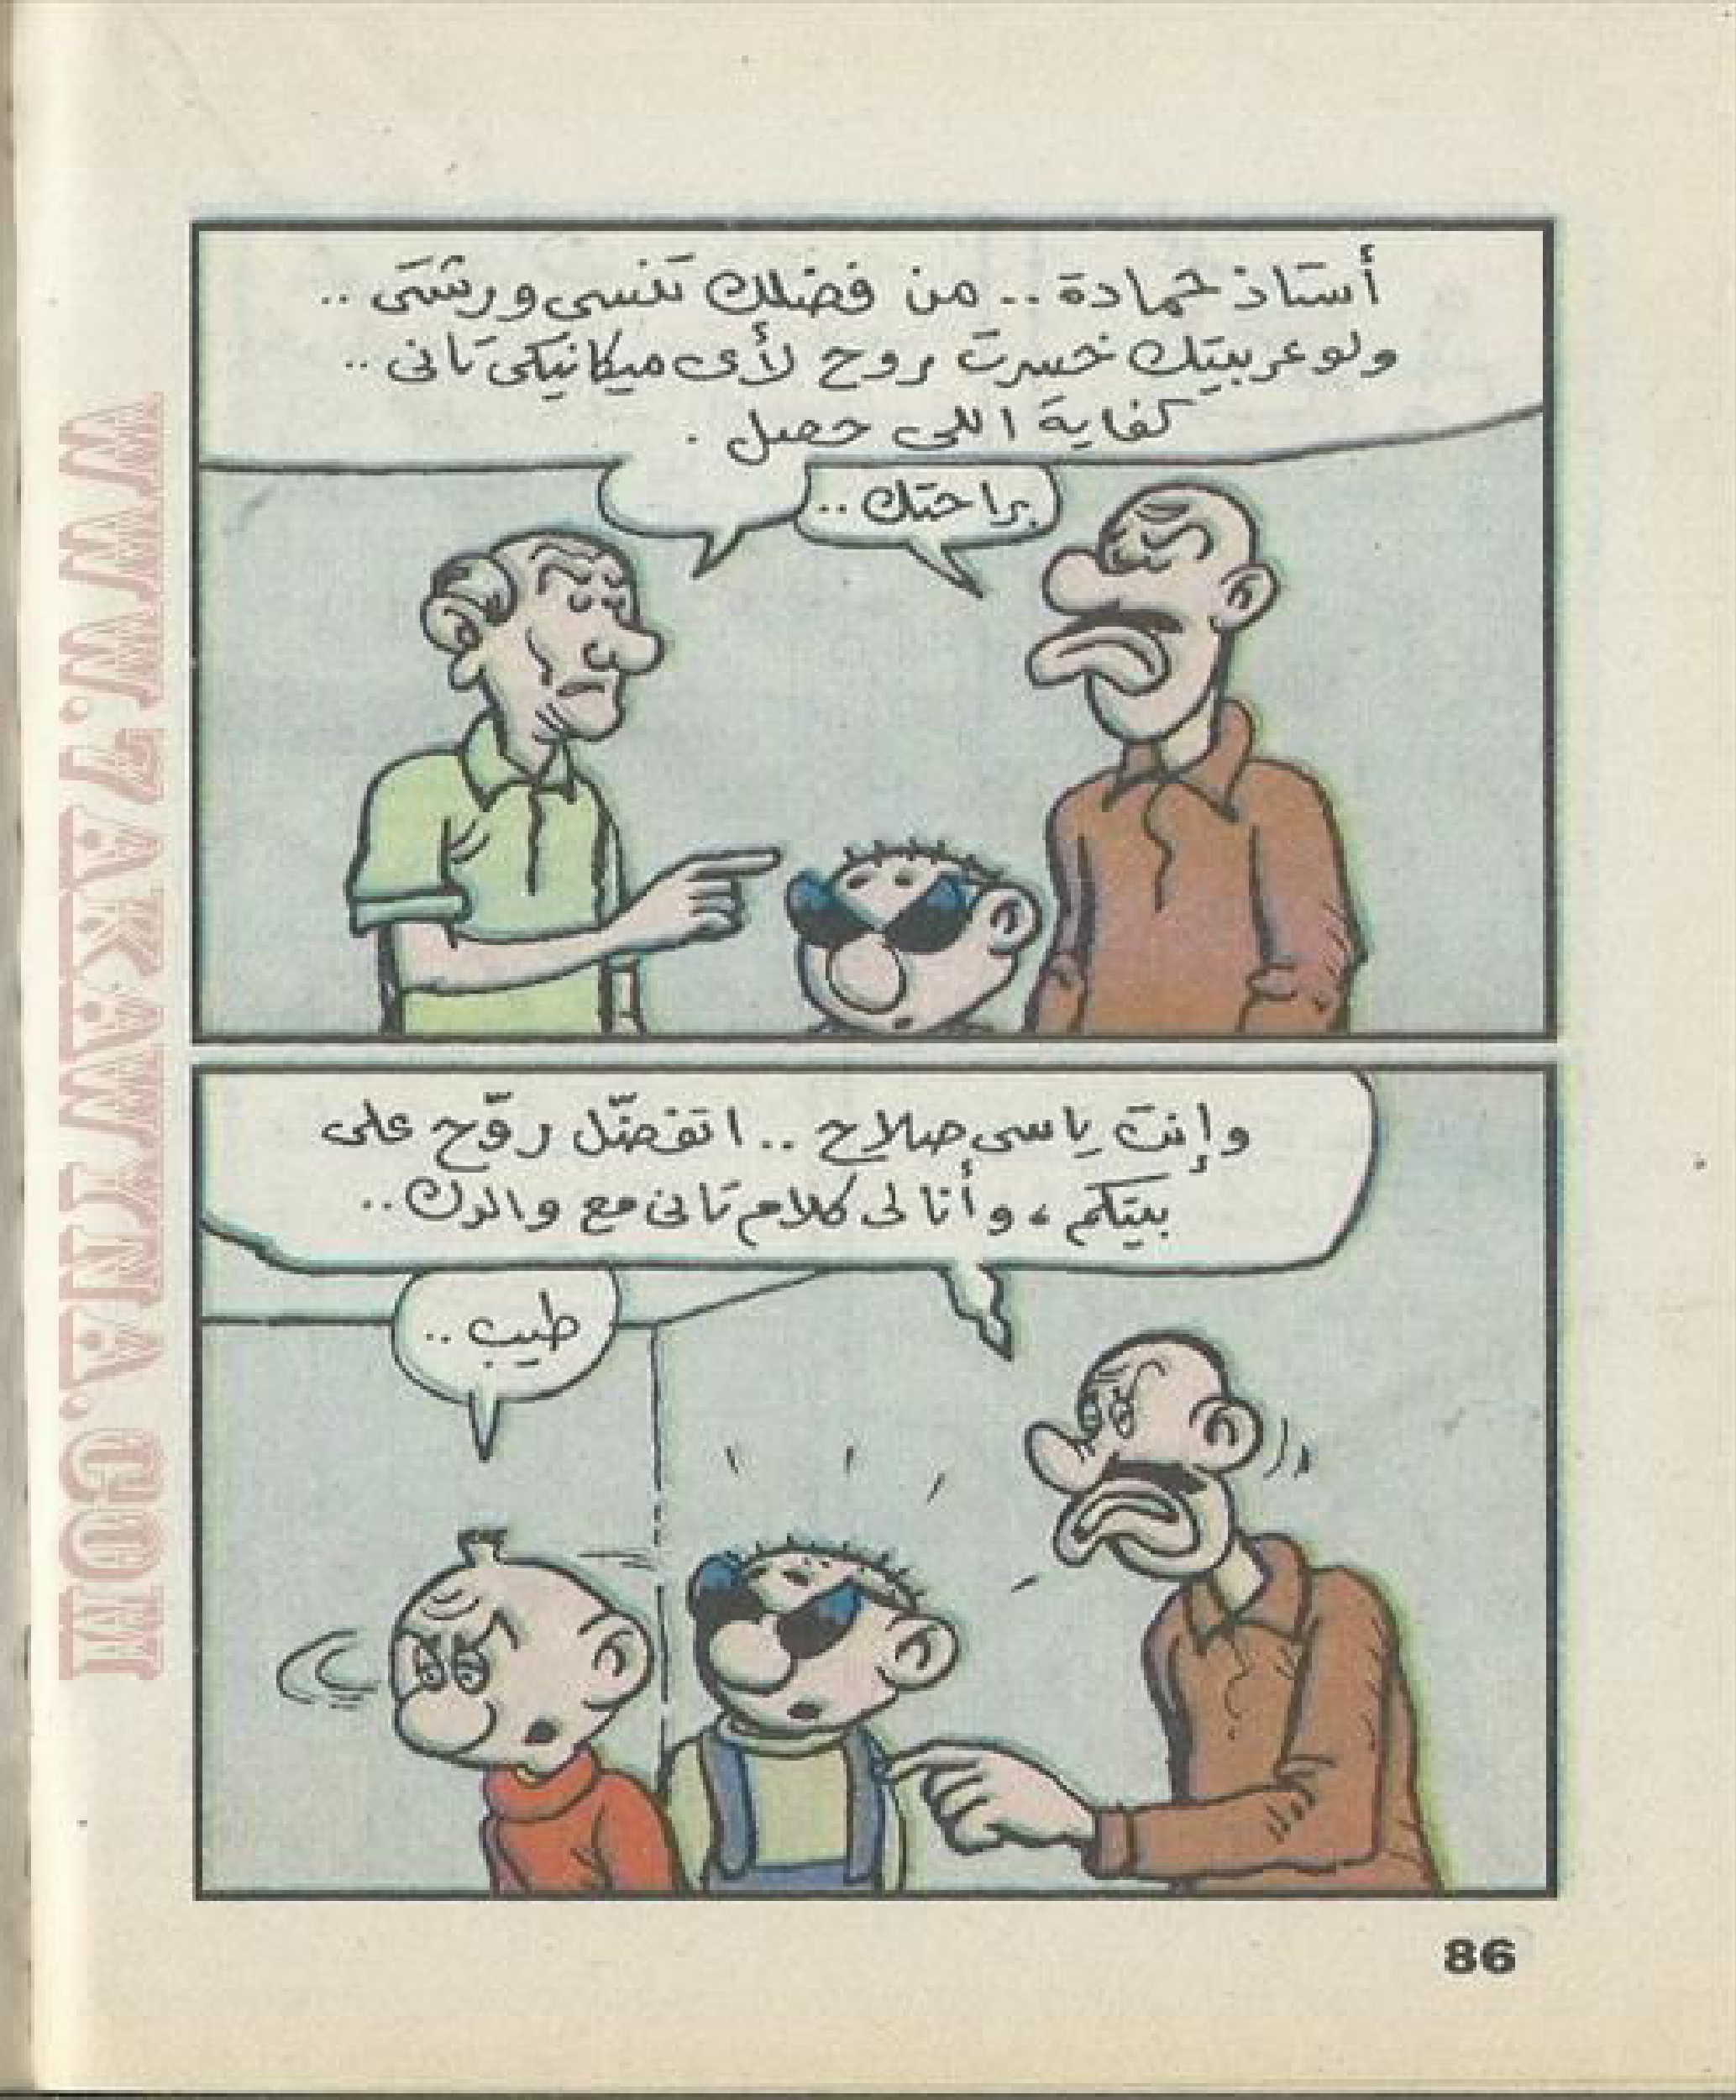 أستاذ حمادة .. من فضلك تنسى ورشتى ..
ولو عربيتك خسرت تروح لأى ميكانيكى تانى ..
كفاية اللى حصل .
براحتك ..
وإنت ياسى صلاح .. اتفضّل روّح على
بيتكم ، وأنا لى كلام تانى مع والدك ..
طيب ..
86
WWW.7AKAWITNA.COM